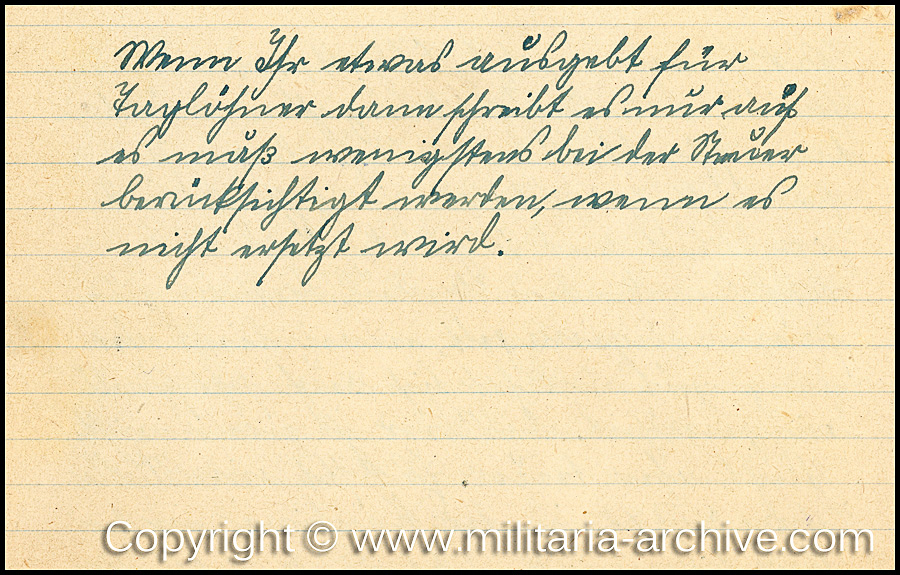 Wenn Ihr etwas ausgebt für
Taglöhner dann schreibt es nur auf
es muß wenigstens bei der Steuer
berücksichtigt werden, wenn es
nicht ersetzt wird.
Copyright © www.militaria-archive.com